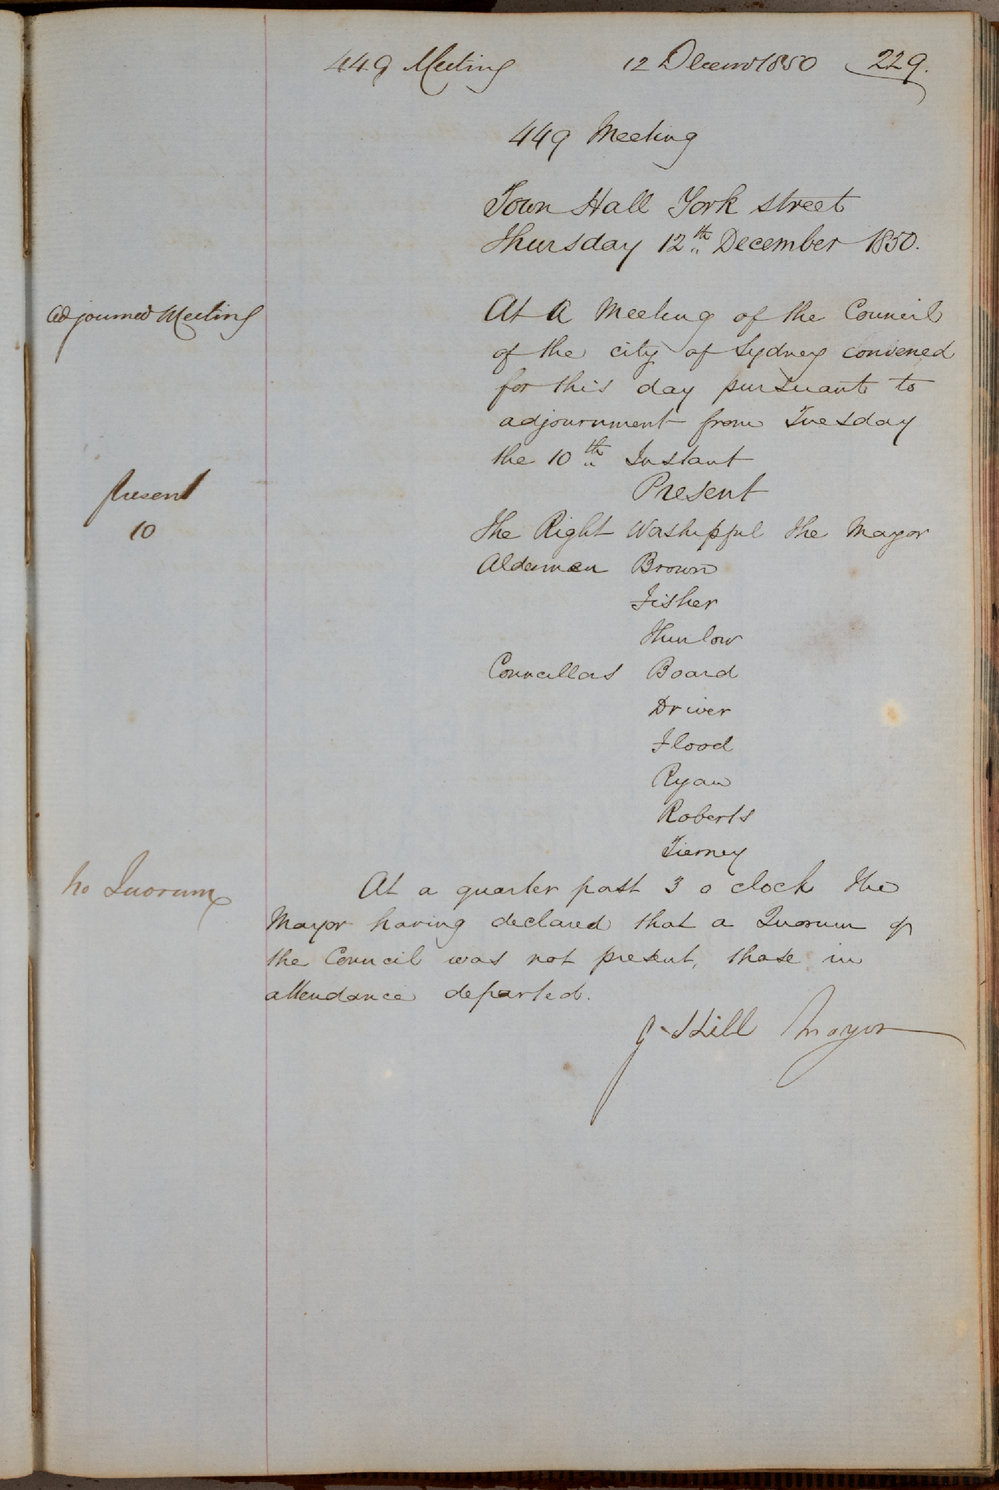 449 Meeting 12 Decemr 1850 229.
449 Meeting
Town Hall York street
Thursday 12th December 1850.
Adjourned Meeting
At A Meeting of the Council
of the city of Sydney convened
for this day pursuant to
adjournment from Tuesday
the 10th Instant
Present
10
Present
The Right Worshipful the Mayor
Aldermen Brown
Fisher
Thurlow
Councillors Board
Driver
Flood
Ryan
Roberts
Tierney
No Quorum
At a quarter past 3 o clock the
Mayor having declared that a Quorum of
the Council was not present, those in
attendance departed.
G Hill Mayor